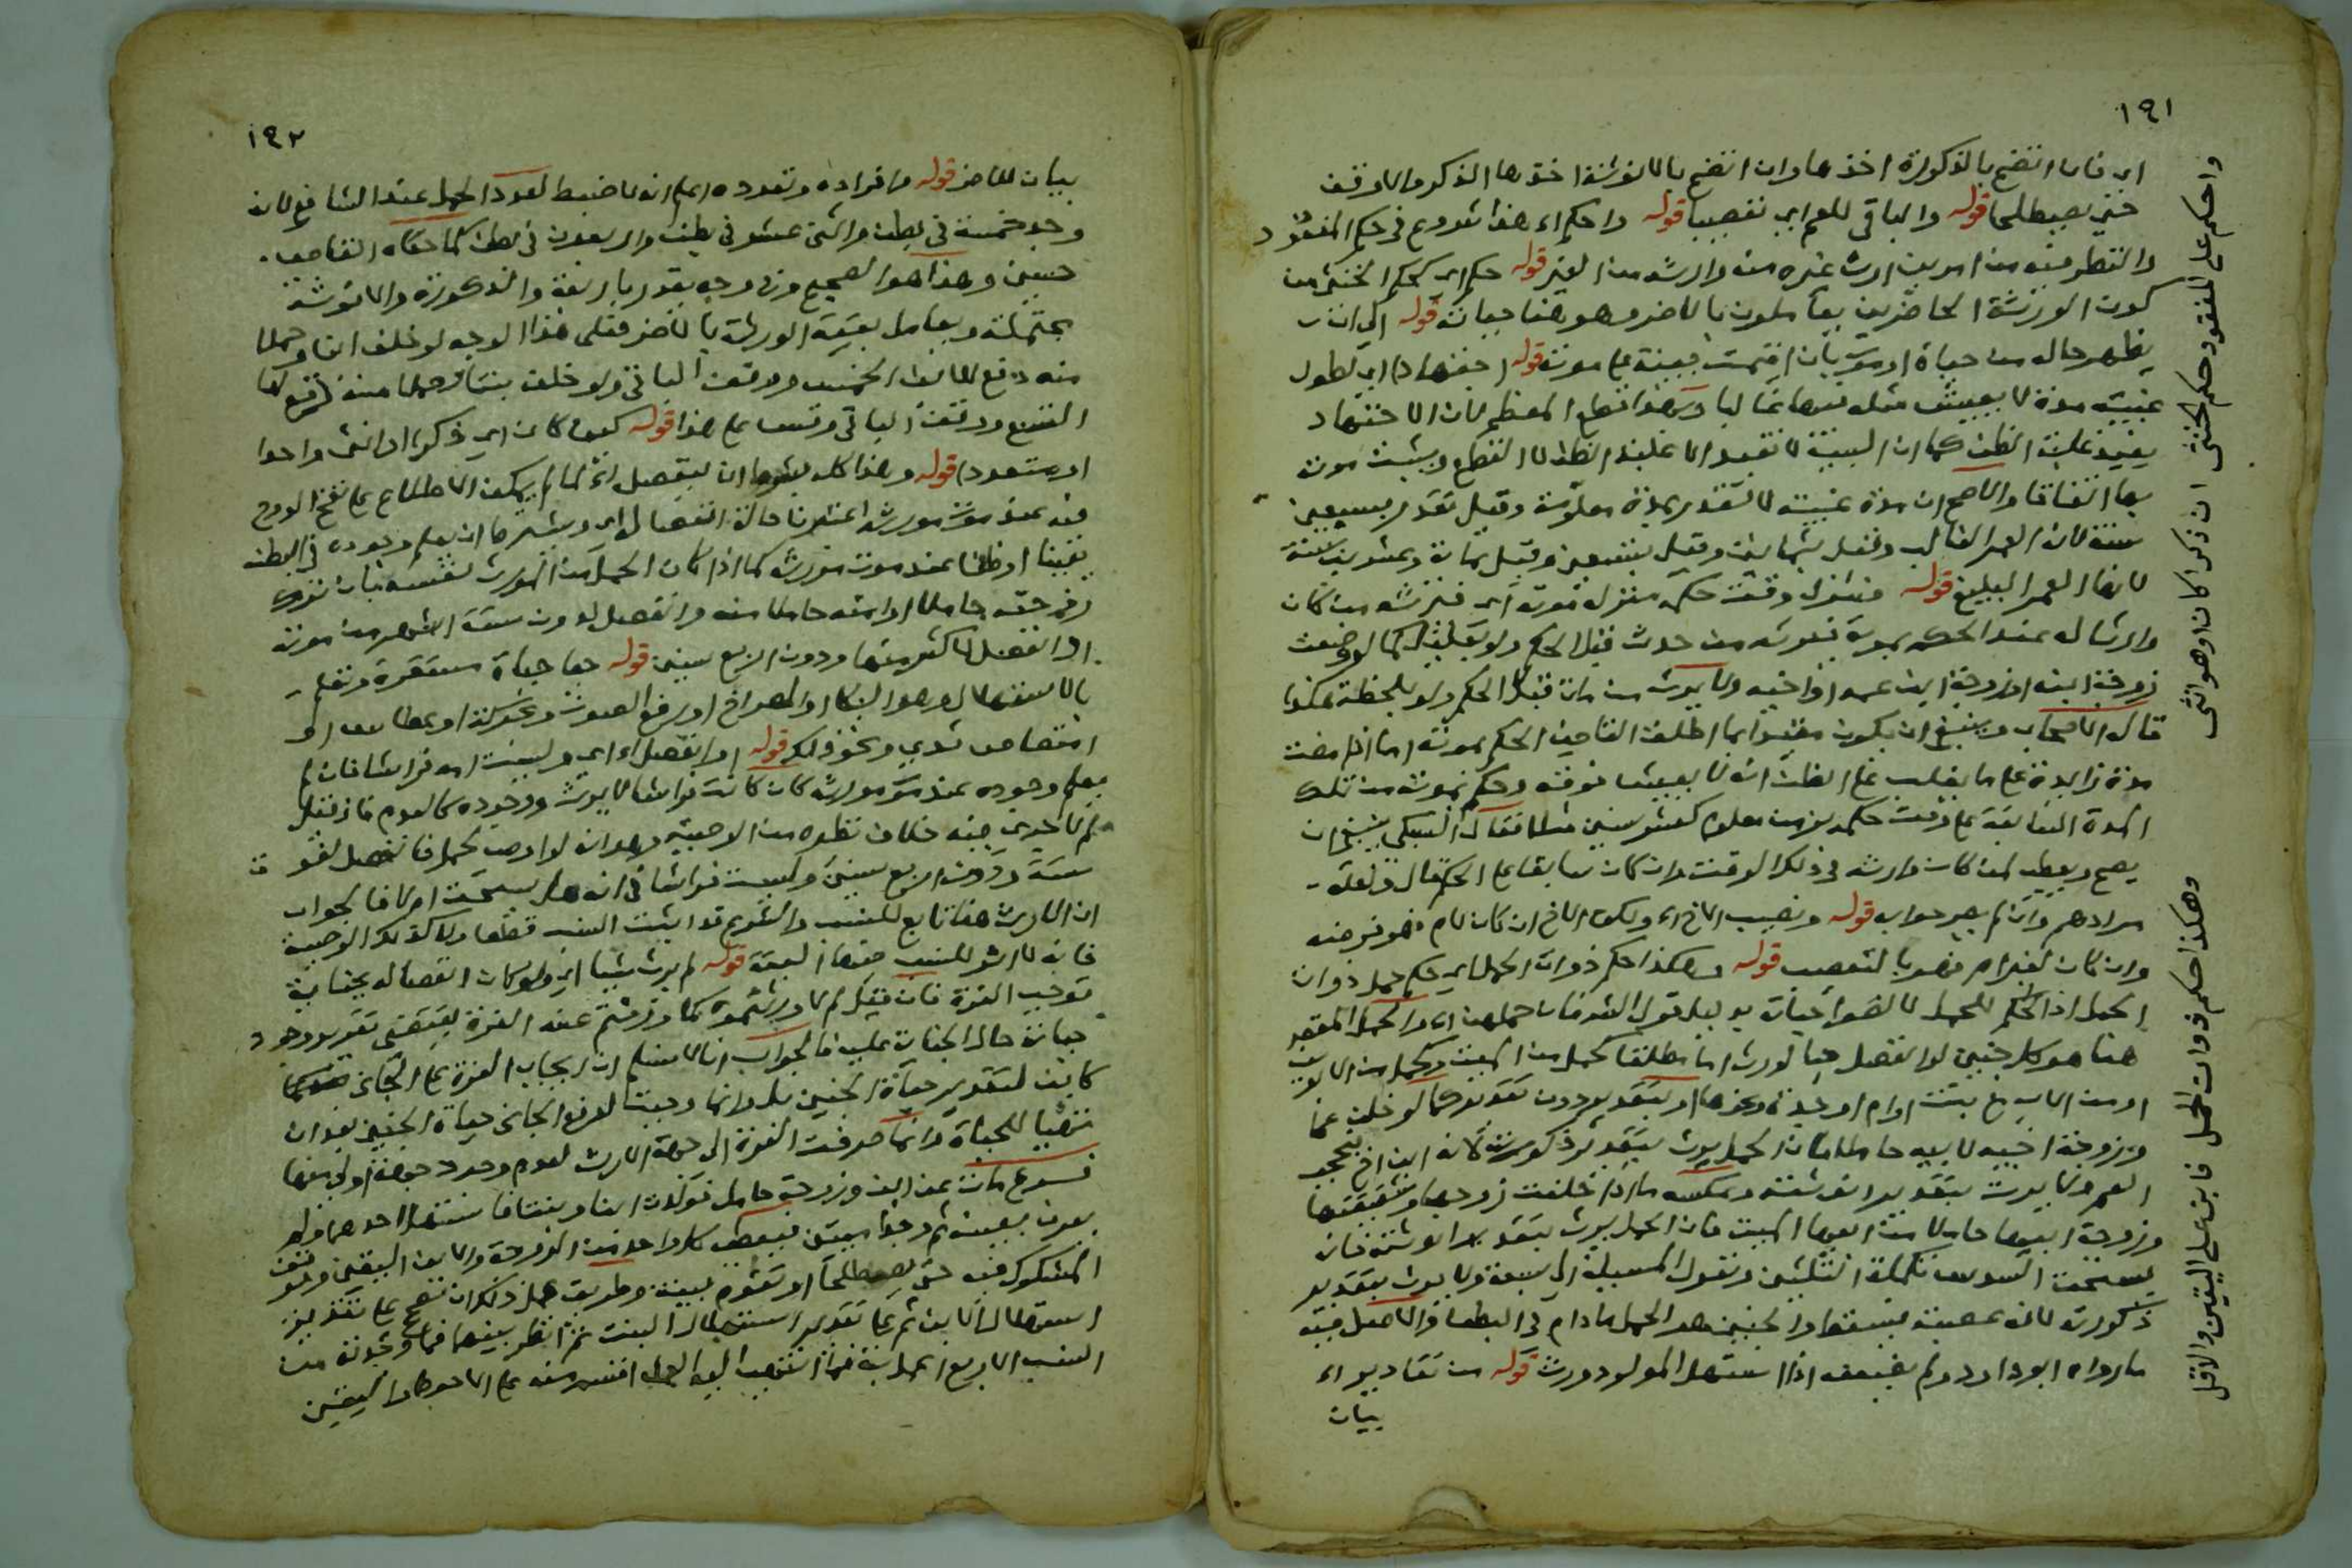 ١٩١
اي فان اتضح بالذكورة اخذها وان اتضح بالانوثة اخذها الذكر والا وقف
حتى يصطلحا قوله والباقي للعم اي تعصيبا قوله واحكم اء هذا شروع في حكم المفقود
والنظر فيه من امرين ارث غيره منه وارثه من الغير قوله حكم اي كحكم الخنثى من
كون الورثة الحاضرين يعاملون بالاضر وهو هنا حياته قوله الى ان
يظهر حاله من حياة او موت بان اقيمت بينة على موته قوله اجتهادا اي لطول
غيبته مدة لا يعيش مثله فيها غالبا
يفيد غلبة الظن كما ان البينة لا تفيد الا غلبة الظن لا القطع ويثبت موته
بها اتفاقا والاصح ان مدة غيبته لا تقدر بمدة معلومة وقيل تقدر بسبعين
سنة لانه العمر الغالب وقيل بثمانين وقيل بتسعين وقيل بمائة وعشرين سنة
لانها العمر قوله فينزل وقت حكمه منزلة موته اي فيرثه من كان
وارثا له عند الحكم بموته من حدث قبل الحكم ولو بلحظة كما لو وضعت
زوجة ابنه او زوجة ابن عمه او اخيه ولا يرث من مات قبل الحكم ولو بلحظة هكذا
قال الاصحاب وينبغي ان يكون مقيدا بما اطلق القاضي الحكم بموته اما اذا مضت
مدة زايدة على ما يغلب على الظن انه لا يعيش فوقه وحكم بموته من تلك
المدة السابقة على وقت حكمه بزمن معلوم كعشر سنين مثلا فقال السبكي ينبغي ان
يصح ويعطي لمن كان وارثه في ذلك الوقت وان كان سابقا على الحكم قال ولعله
مرادهم وان لم يصرحوا به قوله ونصيب الاخ اء ولكن الاخ ان كان لام فهو فرضه
وان كان لغير ام فهو بالتعصيب قوله وهكذا حكم ذوات الحمل اي حكم حمل ذوات
الحمل اذ الحكم للحمل لا لهن بدليل قول الش فان حملهن اء والحمل المعتبر
هنا هو كل جنين لو انفصل حيا لورث اما مطلقا كحمل من الميت وكحمل من الاب
او من الاب مع بنت او ام او جدة ونحوها او بتقدير دون تقدير كما لو خلف عما
وزوجة اخيه لابيه حاملا فان الحمل يرث بتقدير ذكورته لانه ابن اخ فيحجب
العم ولا يرث بتقدير انوثته وعكسه ما اذا خلفت زوجها وشقيقتها
وزوجة ابيها حاملا من ابيها الميت فان الحمل يرث بتقدير انوثته فان
يستحقه السدس تكملة الثلثين وتعول المسيلة الى سبعة ولا يرث بتقدير
ذكورته لانه عصبة فيسقط والجنين هو الحمل ما دام في البطن والاصل فيه
ما رواه ابو داود ولم يضعفه اذا استهل المولود ورث قوله من تقادير اء
بيان
واحكم على المفقود حكم الخنثى ان ذكرا كان او هو انثى
وهكذا حكم ذوات الحمل فابن على اليقين والاقل
١٩٢
بيان للاضر قوله وافراده وتعدده اعلم انه لا ضبط لعدد الحمل عند الشافعي لانه
وجد خمسة في بطن واثنى عشر في بطن واربعون في بطن كما حكاه القاضي
حسين وهذا هو الصحيح وفي وجه يقدر باربعة والذكورة والانوثة
محتملة ويعامل بقية الورثة بالاضر فعلى هذا الوجه لو خلف ابنا وحملا
منه دفع للابن الخمس ووقف الباقي ولو خلف بنتا وحملا منه دفع لها
التسع ووقف الباقي وقس على هذا قوله كيف كان اي ذكرا او انثى واحدا
او متعددا قوله وهذا كله بشرط ان ينفصل اء لما لم يمكن الاطلاع على نفخ الروح
فيه عند موت مورثه اعتبرنا حالة انفصاله اي ويشترط ان يعلم وجوده في البطن
يقينا او ظنا عند موت مورثه كما اذا كان الحمل من المورث نفسه بان ترك
زوجته حاملا او امته حاملا منه وانفصل لدون ستة اشهر من موته
او انفصل لاكثر منها ودون اربع سنين قوله حيا حياة مستقرة وتعلم
بالاستهلال وهو البكاء او الصراخ او رفع الصوت ونحو كذا وعطاس او
امتصاص ثدي ونحو ذلك قوله او انفصل اء اي وليست امه فراشا فان لم
يعلم وجوده عند موت مورثه كان كانت فراشا لا يرث ووجوده كالعدم فان قيل
لم لا جرى فيه خلاف نظيره من الوصية وهو انه لو اوصى لحمل فانفصل لفوق
ستة ودون اربع سنين وليست فراشا في انه هل يستحق ام لا فالجواب
ان الارث هنا تابع للنسب والشرع قد اثبت النسب قطعا ولا كذلك الوصية
فانه لا اثر للنسب فيها البتة قوله لم يرث شيئا اي ولو كان انفصاله بجناية
توجب الغرة فان قيل لم لا ورثتموه كما ورثتم عنه الغرة تقدير وجود
حياته حال الجناية عليه فالجواب انا لا نسلم ان ايجاب الغرة على الجاني
كاين لتقدير حياة الجنين بل انما وجبت لدفع الجاني حياة الجنين بعد ان
تهيا للحياة وانما صرفت الغرة الى جهة الارث لعدم وجود جهة اولى منها
فرع مات عن ابن وزوجة حامل فولدت ابنا وبنتا فاستهل احدهما ولم
يعرف بعينه ثم وجدا ميتين فيعطى كل واحد من الزوجة والابن اليقين ويوقف
المشكوك فيه حتى يصطلحا او تقوم بينة وطريق عمل ذلك ان تصحح على تقدير
استهلال الابن ثم على تقدير استهلال البنت ثم انظر بينهما فما وجدته من
النسب الاربع اعمل به فما انتهى اليه العمل اقسم منه على الاحوط واليقين